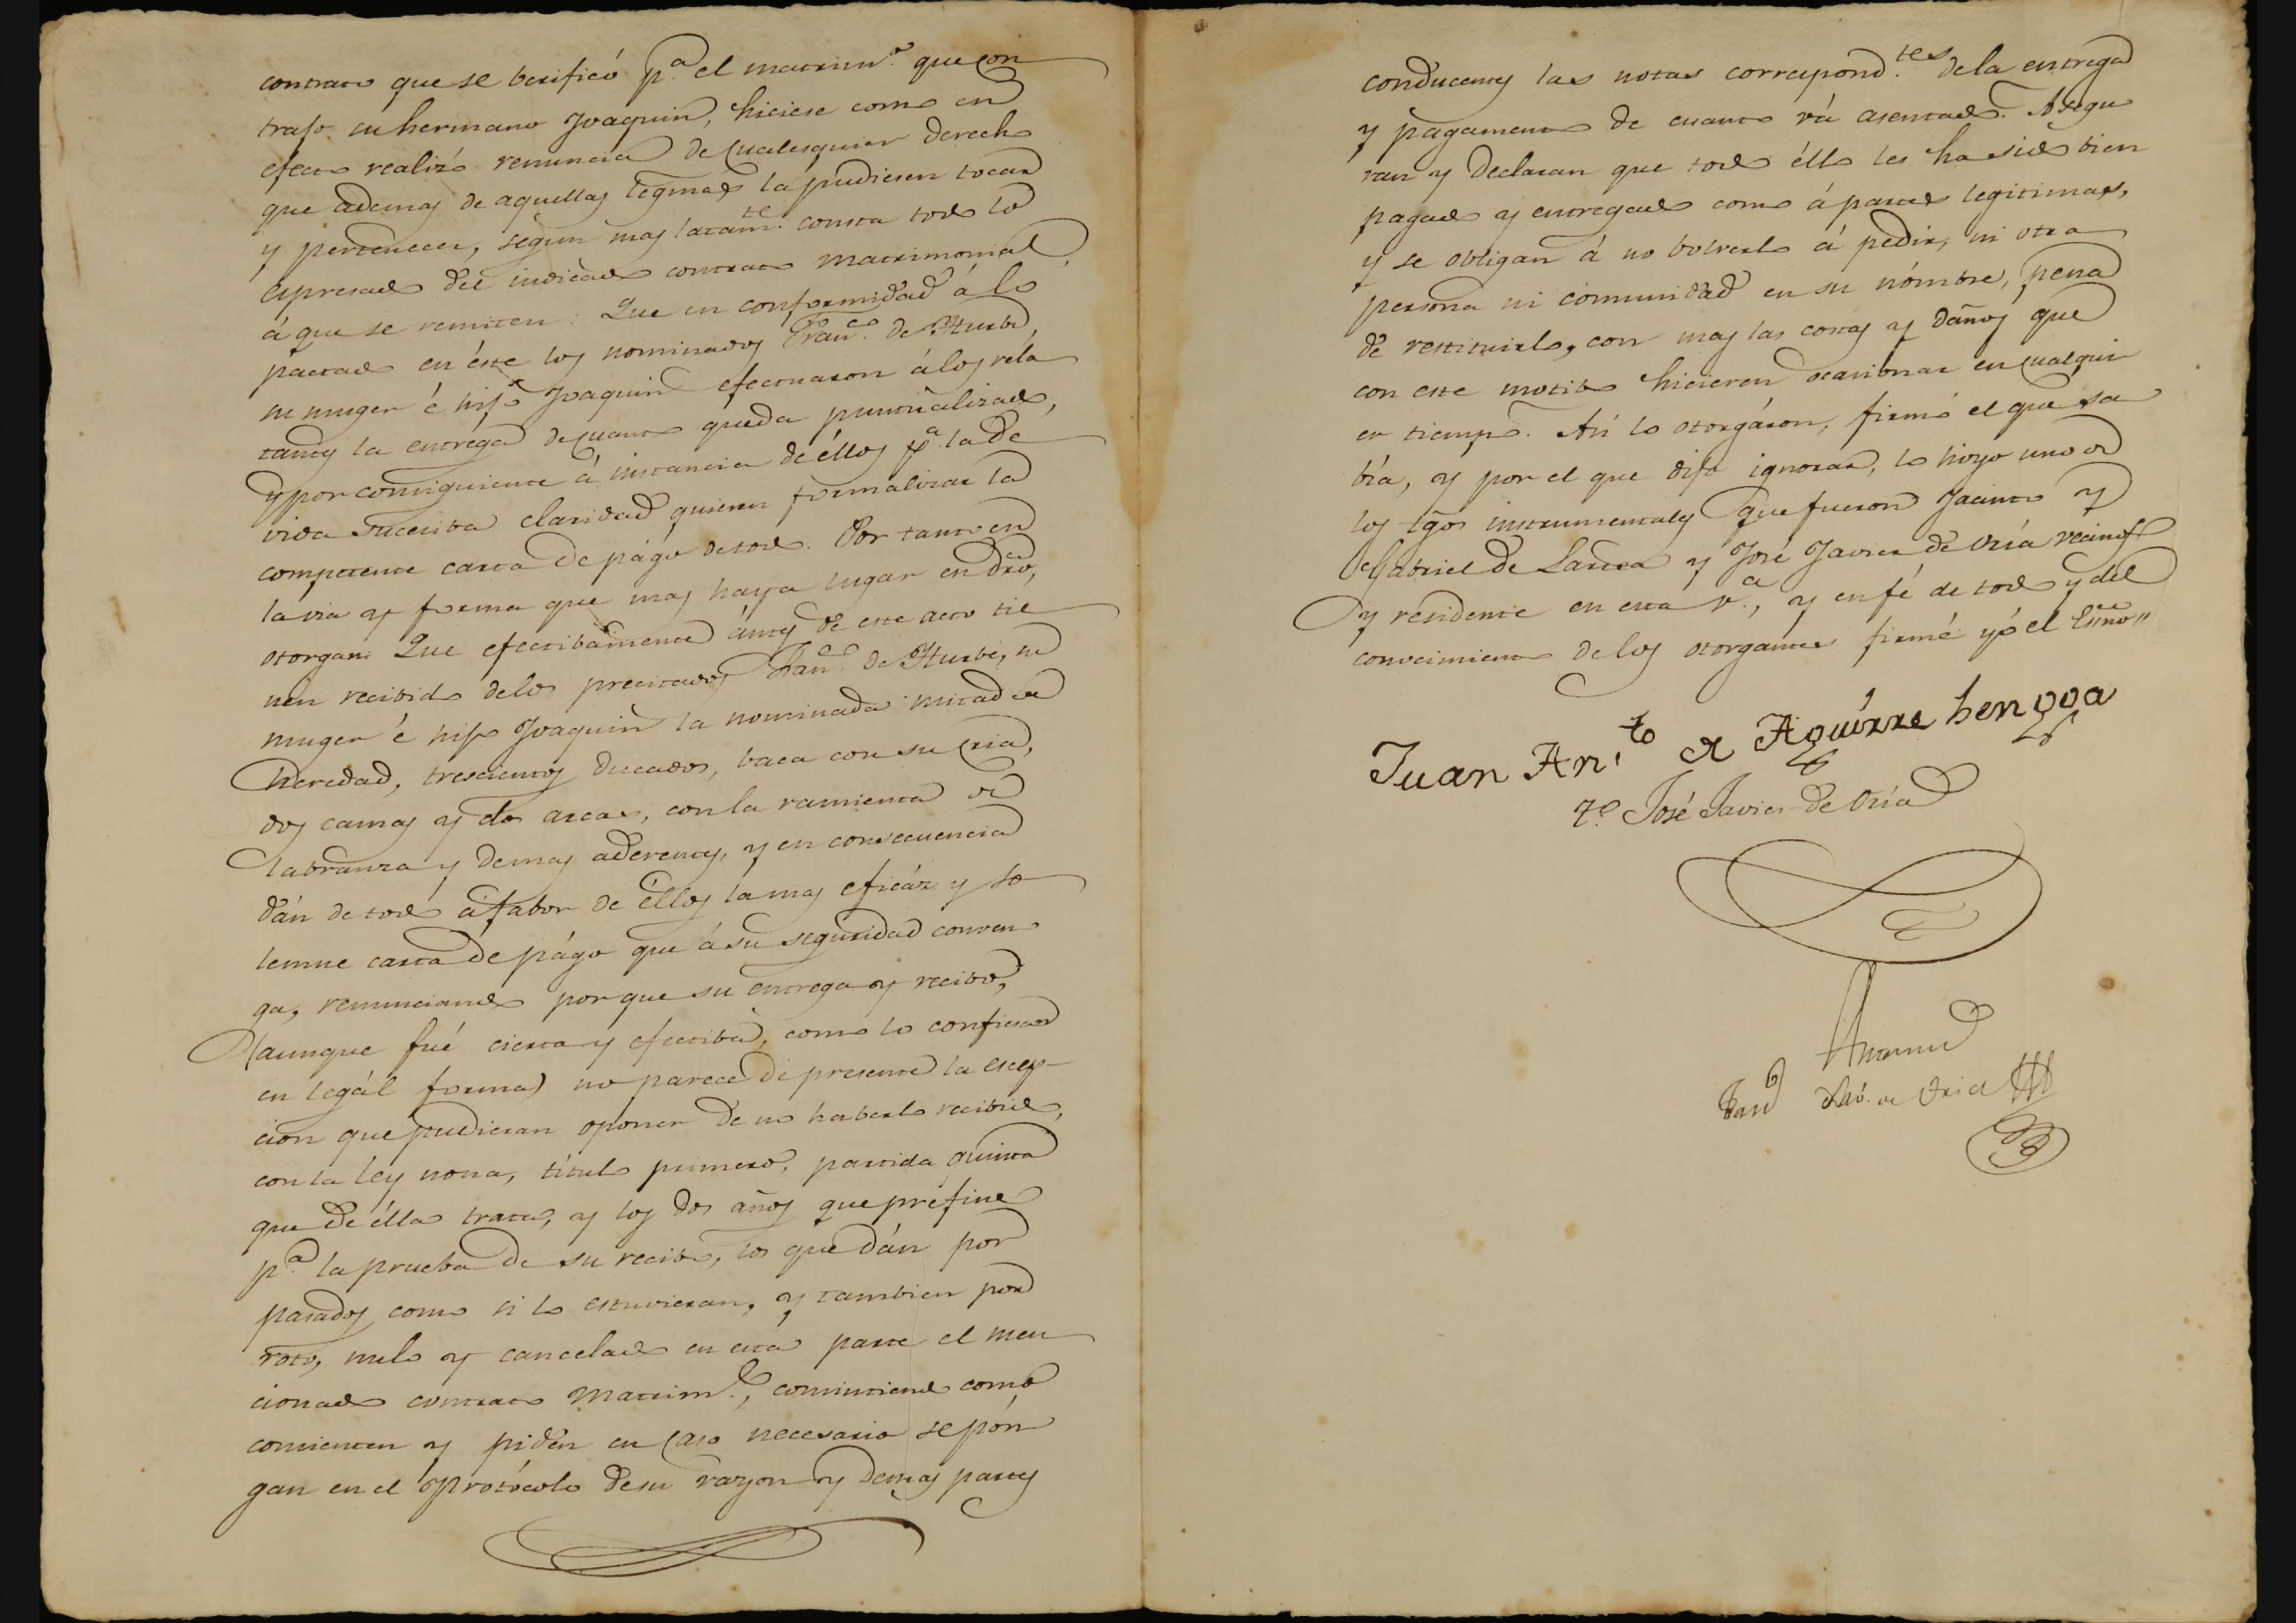 contrato que se berificó p.ª el matrim.º que con
trajo su hermano Joaquin, hiciese como en
efecto realizó renuncia de qualesquier derecho
que ademas de aquellas legmas la pudiesen tocar
y pertenecer, segun mas latam.te consta todo lo
espresado del indicado contrato matrimonial,
á que se remiten: Que en conformidad á lo
pactado en éste los nominados Fran.co de Yturbe,
su muger é hijo Joaquin efectuaron á los rela
tantes la entrega de quanto queda puntualizado,
y por consiguiente á instancia de éllos p.ª la de
vida sucesiba claridad quieren formalizar la
competente carta de págo de todo. Por tanto en
la via y forma que mas haya lugar en dro,
otorgan: Que efectibamente ántes de este acto tie
nen recibido de los precitados Fran.co de Yturbe, su
muger é hijo Joaquin la nominada mitad de
heredad, trescientos ducados, baca con su cria,
dos camas y dos arcas, con la ramienta de
labranza y demas aderentes, y en consecuencia
dán de todo á fabor de éllos la mas eficáz y so
lemne carta de págo que á su seguridad conven
ga, renunciando por que su entrega y recibo,
(aunque fué cierta y efectiba, como lo confiesan
en legál forma) no parece de presente la escep-
cion que pudieran oponer de no haberlo recibido,
con la léy nona, título primero, partida quinta
que de élla trata, y los dos años que prefine
p.ª la prueba de su recibo, los que dán por
pasados como si lo estuvieran, y tambien por
roto, nulo y cancelado en esta parte el men
cionado contrato matrim.l, consintiendo como
consienten y piden en caso necesario se pón
gan en el protócolo de su razon y demas partes
conducentes las notas correspond.tes de la entrega
y págamento de cuanto vá asentado. Asegu
ran y declaran que todo éllo les ha sido bien
pagado y entregado como á partes legitimas,
y se obligan á no bolverlo á pedir, ni otra
persona ni comunidad en su nómbre, pena
de restituirlo, con mas las costas y daños que
con este motibo hicieren ocasionar en qualquier
tiempo. Así lo otorgáron, firmó el que sa
bía, y por el que dijo ignorar, lo hizo uno de
los tgos instrumentales que fueron Jacinto y
Gabriel de Larrea y José Javier de Oria vecinos
y residente en esta v.ª, y en fé de todo y del
conocimiento de los otorgantes firmé yo el Esno"
Juan An.to de Aguirre bengoa
T.º José Javier de Oria
Antemi
Fran.co Xav.r de Oria